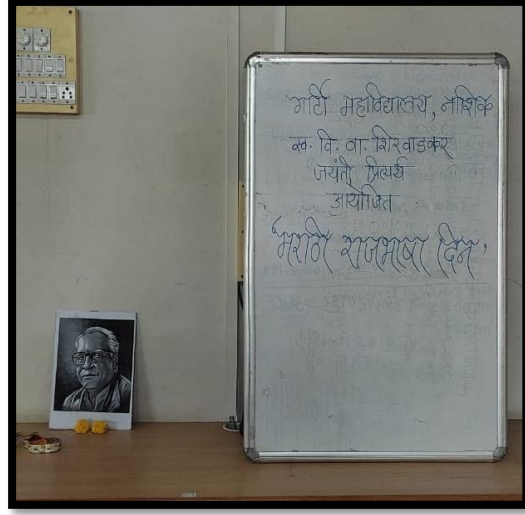 मराठी महाविद्यालय, नाशिक
स्व. वि. वा. शिरवाडकर
जयंती प्रित्यर्थ
आयोजित
"मराठी राजभाषा दिन"